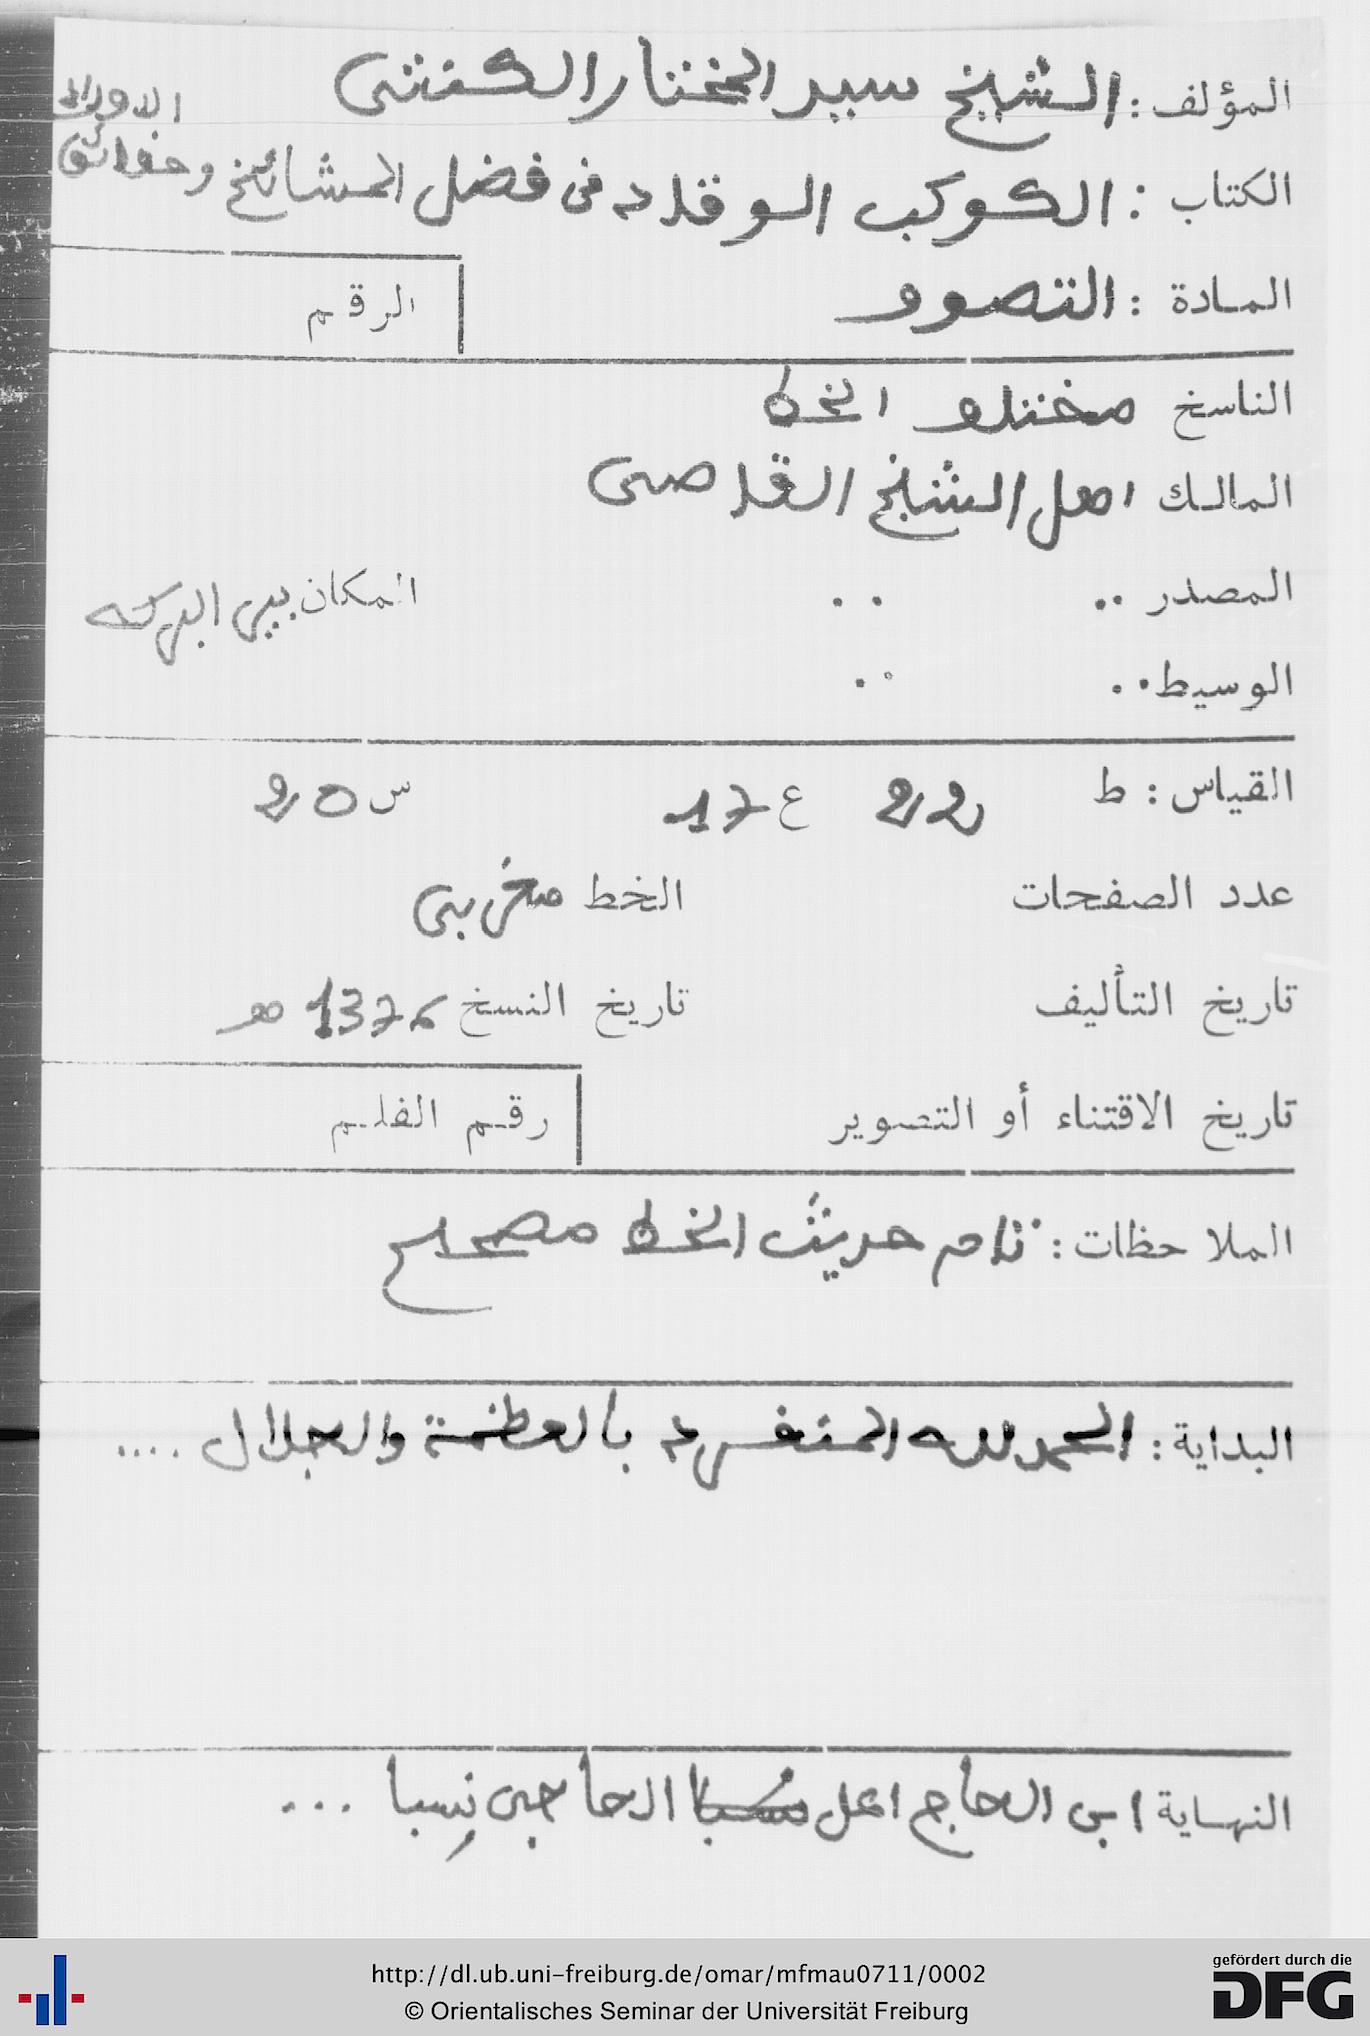 المؤلف : الشيخ سيد المختار الكنتي
الكتاب : الكوكب الوقاد في فضل المشائخ وحقائق
الاوراد
المادة : التصوف
الرقم
الناسخ مختلف الخط
المالك اهل الشيخ القاضي
المصدر ..       ..
المكان بير البركه
الوسيط ..       ..
القياس : ط 22 ع 17 س 20
عدد الصفحات       الخط مغربي
تاريخ التأليف       تاريخ النسخ 1376 هـ
تاريخ الاقتناء أو التصوير       رقم الفلم
الملاحظات : تام حديث الخط مصحح
البداية : الحمد لله المتفرد بالعظمة والجلال ....
النهاية ابن الحاج اعل الحاجي نسبا ...
http://dl.ub.uni-freiburg.de/omar/mfmau0711/0002
© Orientalisches Seminar der Universität Freiburg
gefördert durch die
DFG